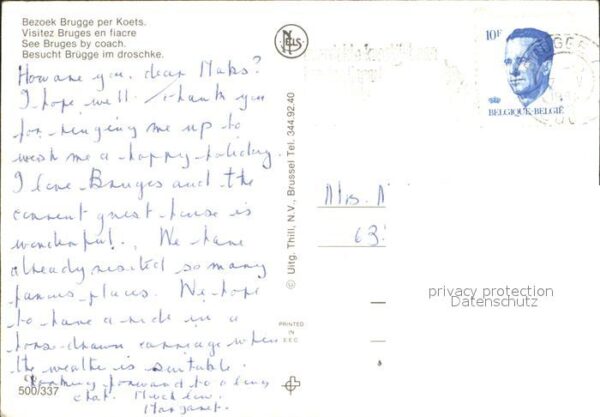 Bezoek Brugge per Koets.
Visitez Bruges en fiacre
See Bruges by coach.
Besucht Brügge im droschke.
How are you, dear Mabs?
I hope well. Thank you
for ringing me up to
wish me a happy holiday.
I love Bruges and the
convent guest-house is
wonderful!.. We have
already visited so many
famous places. We hope
to have a ride in a
horse-drawn carriage when
the weather is suitable.
Looking forward to a long
chat. Much love.
Margaret.
500/337
NELS
© Uitg. Thill, N.V., Brussel Tel. 344.92.40
PRINTED
IN
EEC
10F
BELGIQUE-BELGIË
BRUGGE
Mrs.
63
privacy protection
Datenschutz